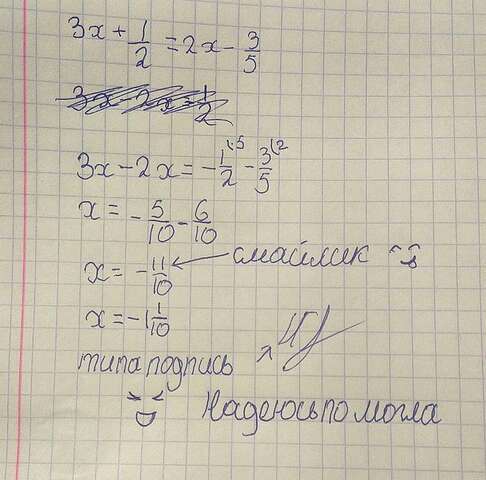 3x + 1/2 = 2x - 3/5
3x - 2x = - 1/2 \·5 - 3/5 \·2
x = - 5/10 - 6/10
x = - 11/10 ← смайлик
x = -1 1/10
типа подпись
Надеюсь помогла